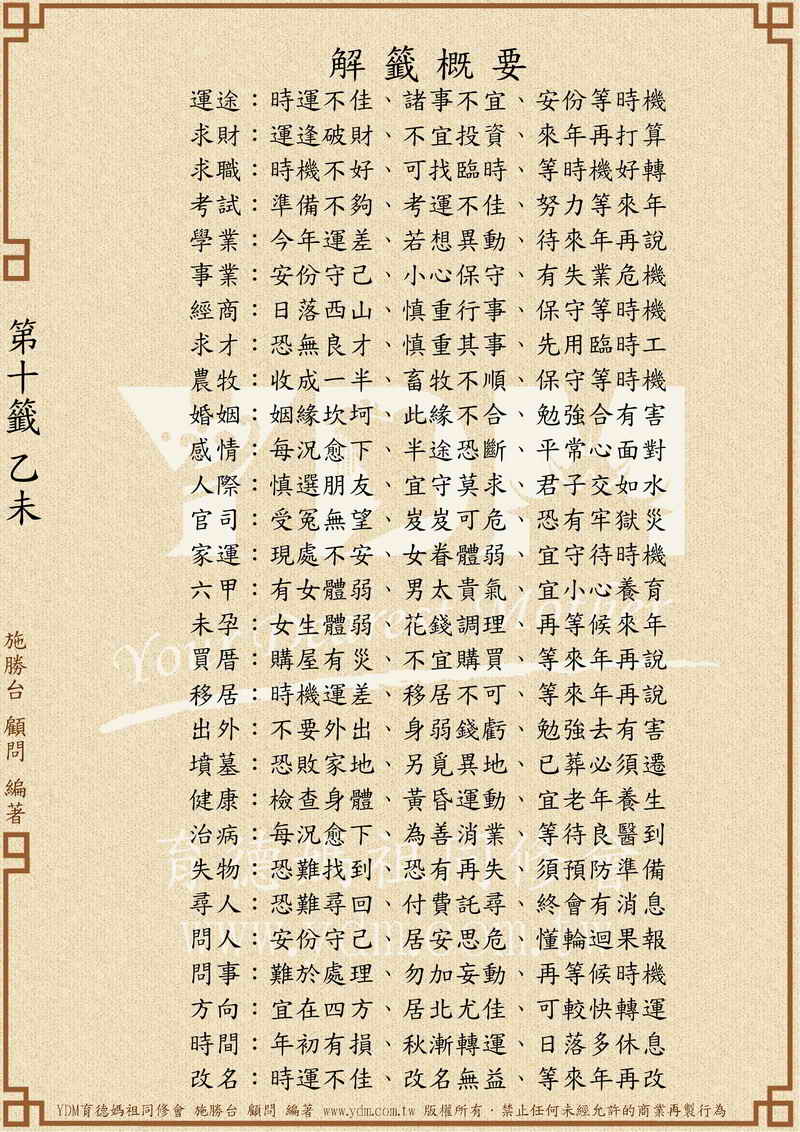 解籤概要
運途：時運不佳、諸事不宜、安份等時機
求財：運逢破財、不宜投資、來年再打算
求職：時機不好、可找臨時、等時機好轉
考試：準備不夠、考運不佳、努力等來年
學業：今年運差、若想異動、待來年再說
事業：安份守己、小心保守、有失業危機
經商：日落西山、慎重行事、保守等時機
求才：恐無良才、慎重其事、先用臨時工
農牧：收成一半、畜牧不順、保守等時機
婚姻：姻緣坎坷、此緣不合、勉強合有害
感情：每況愈下、半途恐斷、平常心面對
人際：慎選朋友、宜守莫求、君子交如水
官司：受冤無望、岌岌可危、恐有牢獄災
家運：現處不安、女眷體弱、宜守待時機
六甲：有女體弱、男太貴氣、宜小心養育
未孕：女生體弱、花錢調理、再等候來年
買厝：購屋有災、不宜購買、等來年再說
移居：時機運差、移居不可、等來年再說
出外：不要外出、身弱錢虧、勉強去有害
墳墓：恐敗家地、另覓異地、已葬必須遷
健康：檢查身體、黃昏運動、宜老年養生
治病：每況愈下、為善消業、等待良醫到
失物：恐難找到、恐有再失、須預防準備
尋人：恐難尋回、付費託尋、終會有消息
問人：安份守己、居安思危、懂輪迴果報
問事：難於處理、勿加妄動、再等候時機
方向：宜在四方、居北尤佳、可較快轉運
時間：年初有損、秋漸轉運、日落多休息
改名：時運不佳、改名無益、等來年再改
第十籤 乙未
施勝台 顧問 編著
YDM
育德媽祖同修會
www.ydm.com.tw
YDM育德媽祖同修會 施勝台 顧問 編著 www.ydm.com.tw 版權所有．禁止任何未經允許的商業再製行為